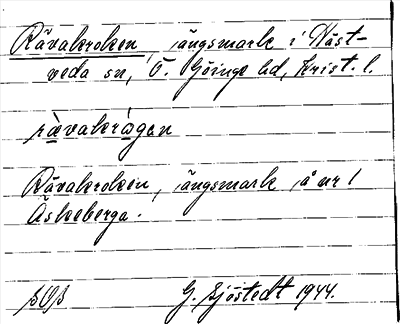 Rävakroken, ängsmark i Näst-
veda sn, Ö. Göinge hd, Krist. l.
rävakrågen
Rävakroken, ängsmark å nr 1
Äskeberga.
G. Sjöstedt 1944.